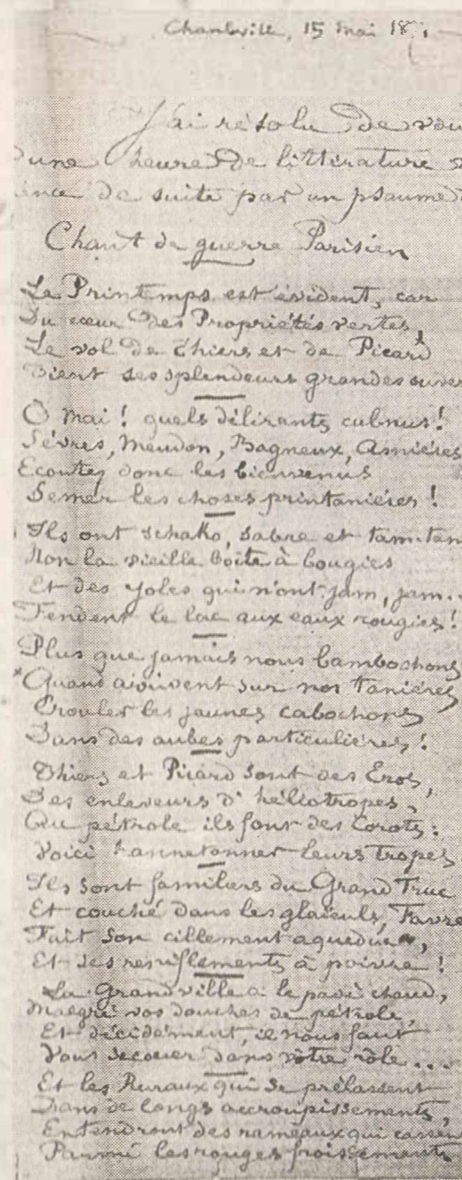 Charleville, 15 mai 187
J'ai résolu de vou
d'une heure de littérature
ence de suite par un psaume d
Chant de guerre Parisien
Le Printemps est évident, car
Du cœur des Propriétés vertes,
Le vol de Thiers et de Picard
Tient ses splendeurs grandes ouver
Ô mai ! quels délirants culs nus !
Sèvres, Meudon, Bagneux, Asnières
Ecoutez donc les bienvenus
Semer les choses printanières !
Ils ont schako, sabre et tam-tam
Non la vieille boîte à bougies
Et des yoles qui n'ont jam, jam...
Fendent le lac aux eaux rougies !
Plus que jamais nous bambochons
*Quand arrivent sur nos tanières
Crouler les jaunes cabochons
Dans des aubes particulières !
Thiers et Picard sont des Eros,
Des enleveurs d'héliotropes,
Au pétrole ils font des Corots :
Voici hannetonner leurs tropes
Ils sont familiers du Grand Truc
Et couché dans les glaïeuls, Favre
Fait son cillement aqueduc,
Et ses reniflements à poivre !
La Grand ville a le pavé chaud,
Malgré vos douches de pétrole,
Et décidément, il nous faut
Vous secouer dans votre rôle...
Et les Ruraux qui se prélassent
Dans de longs accroupissements,
Entendront des rameaux qui cassen
Parmi les rouges froissements